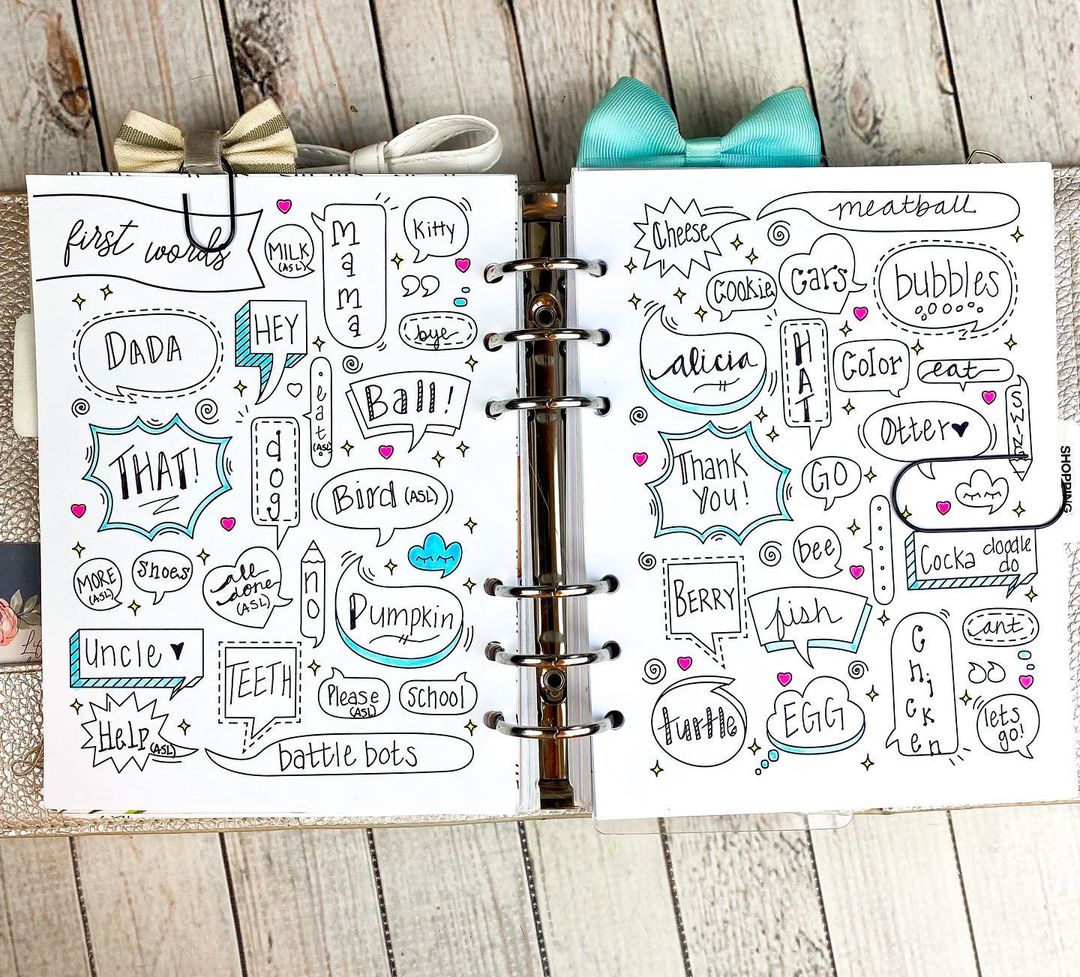 first words
MILK
(ASL)
Mama
Kitty
DADA
HEY
bye
eat
(ASL)
Ball!
THAT!
dog
Bird (ASL)
MORE
(ASL)
Shoes
all
done
(ASL)
no
Pumpkin
uncle
TEETH
Please
(ASL)
school
Help
(ASL)
battle bots
Cheese
meatball
Cookie
cars
bubbles
alicia
HAT
Color
eat
SWING
Otter
Thank
you!
GO
SHOPPING
bee
Cocka doodle
do
BERRY
fish
Chicken
ant
turtle
EGG
lets
go!